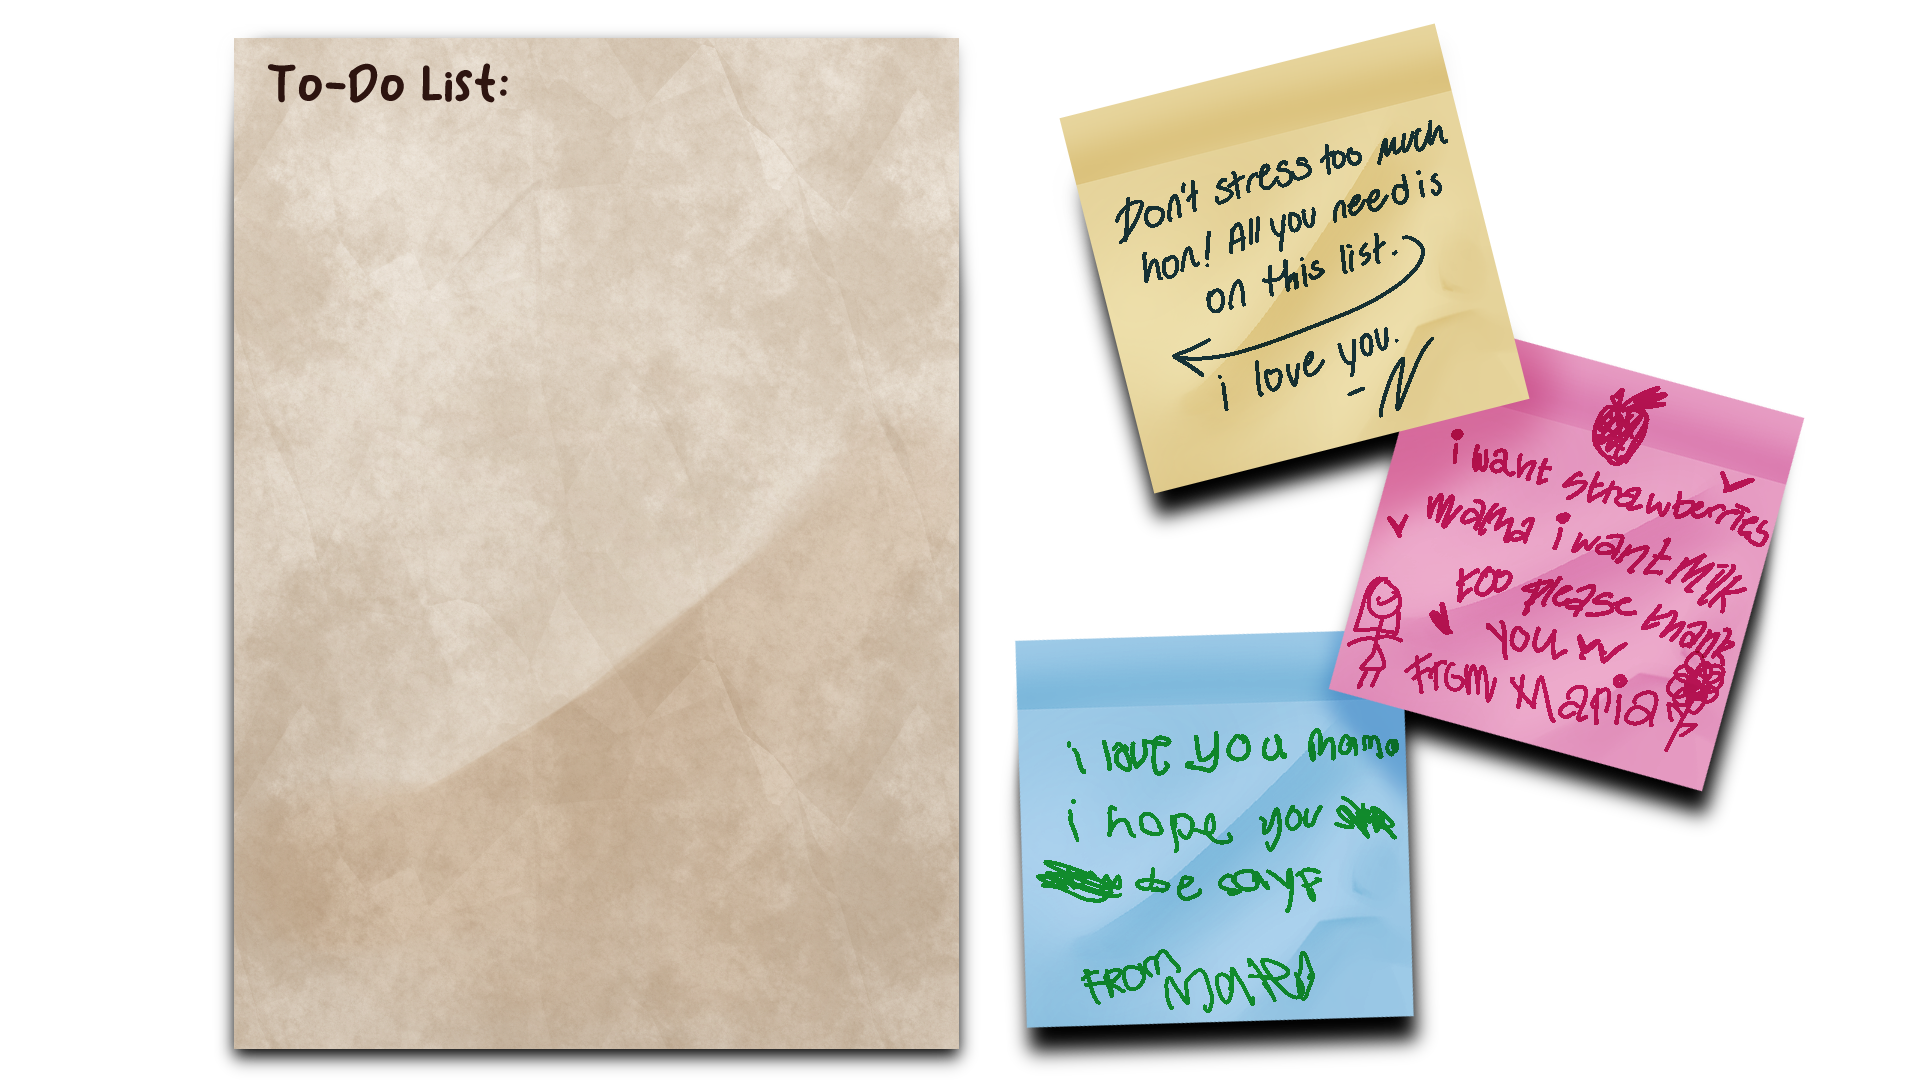 To-Do List:
Don't stress too much
hon! All you need is
on this list.
i love you.
-N
i want strawberries
mama i want milk
too please thank
you
from Maria
i love you mama
i hope you
be sayf
FROM